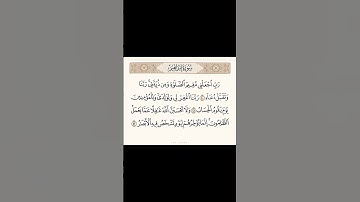 سورة إبراهيم
رب اجعلني مقيم الصلوة ومن ذريتي ربنا
وتقبل دعاء ٤٠ ربنا اغفر لي ولوالدي وللمؤمنين
يوم يقوم الحساب ٤١ ولا تحسبن الله غفلا عما يعمل
الظلمون إنما يؤخرهم ليوم تشخص فيه الأبصر ٤٢